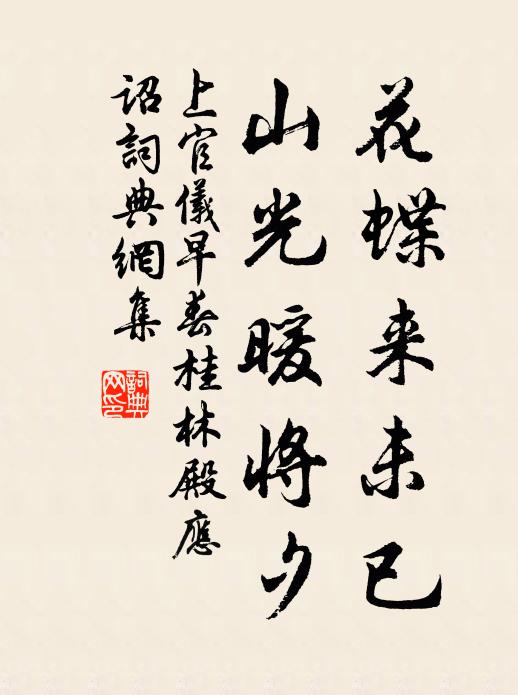 花蝶来未已
山光暖将夕
上官儀早春桂林殿應
詔詞典網集
詞典
网印